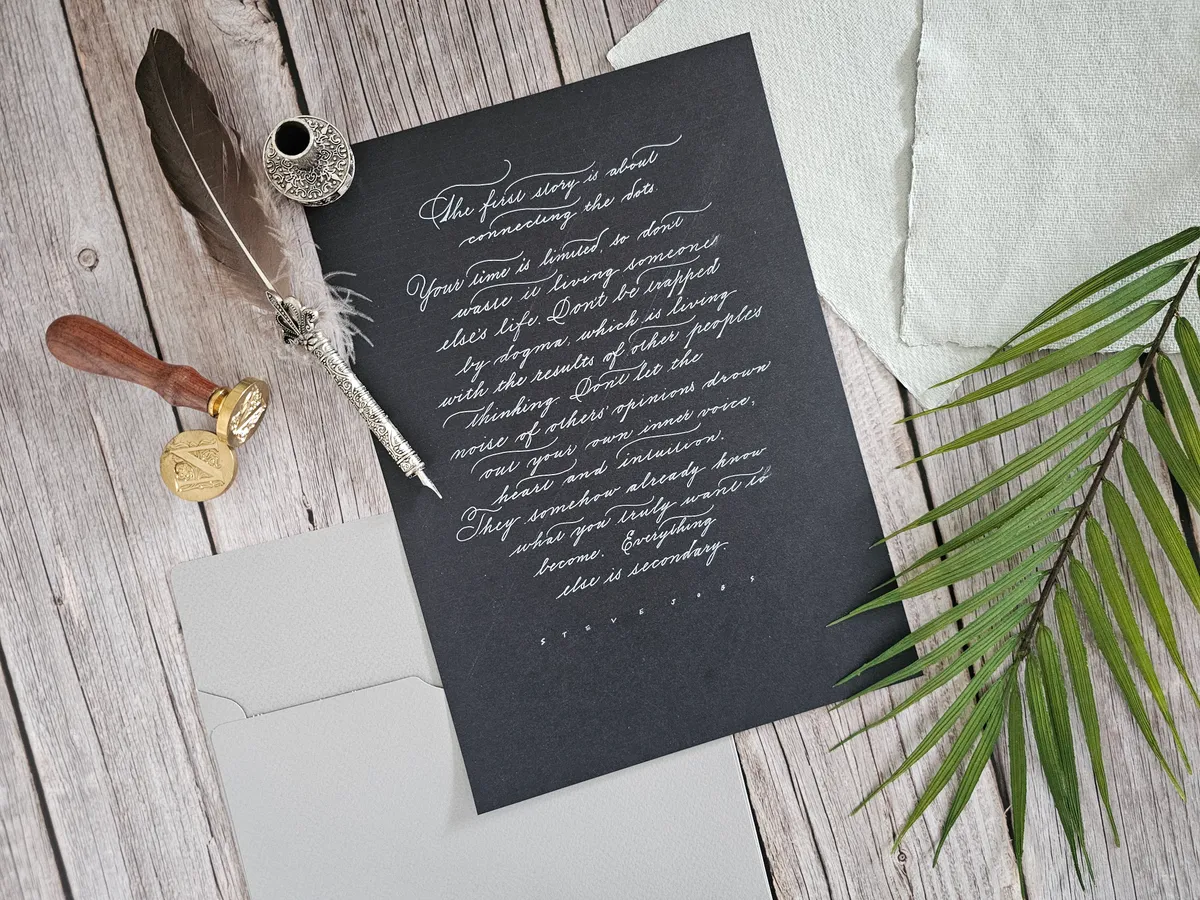 The first story is about
connecting the dots.
Your time is limited, so don't
waste it living someone
else's life. Don't be trapped
by dogma, which is living
with the results of other peoples
thinking. Don't let the
noise of others' opinions drown
out your own inner voice,
heart and intuition.
They somehow already know
what you truly want to
become. Everything
else is secondary.
STEVE JOBS